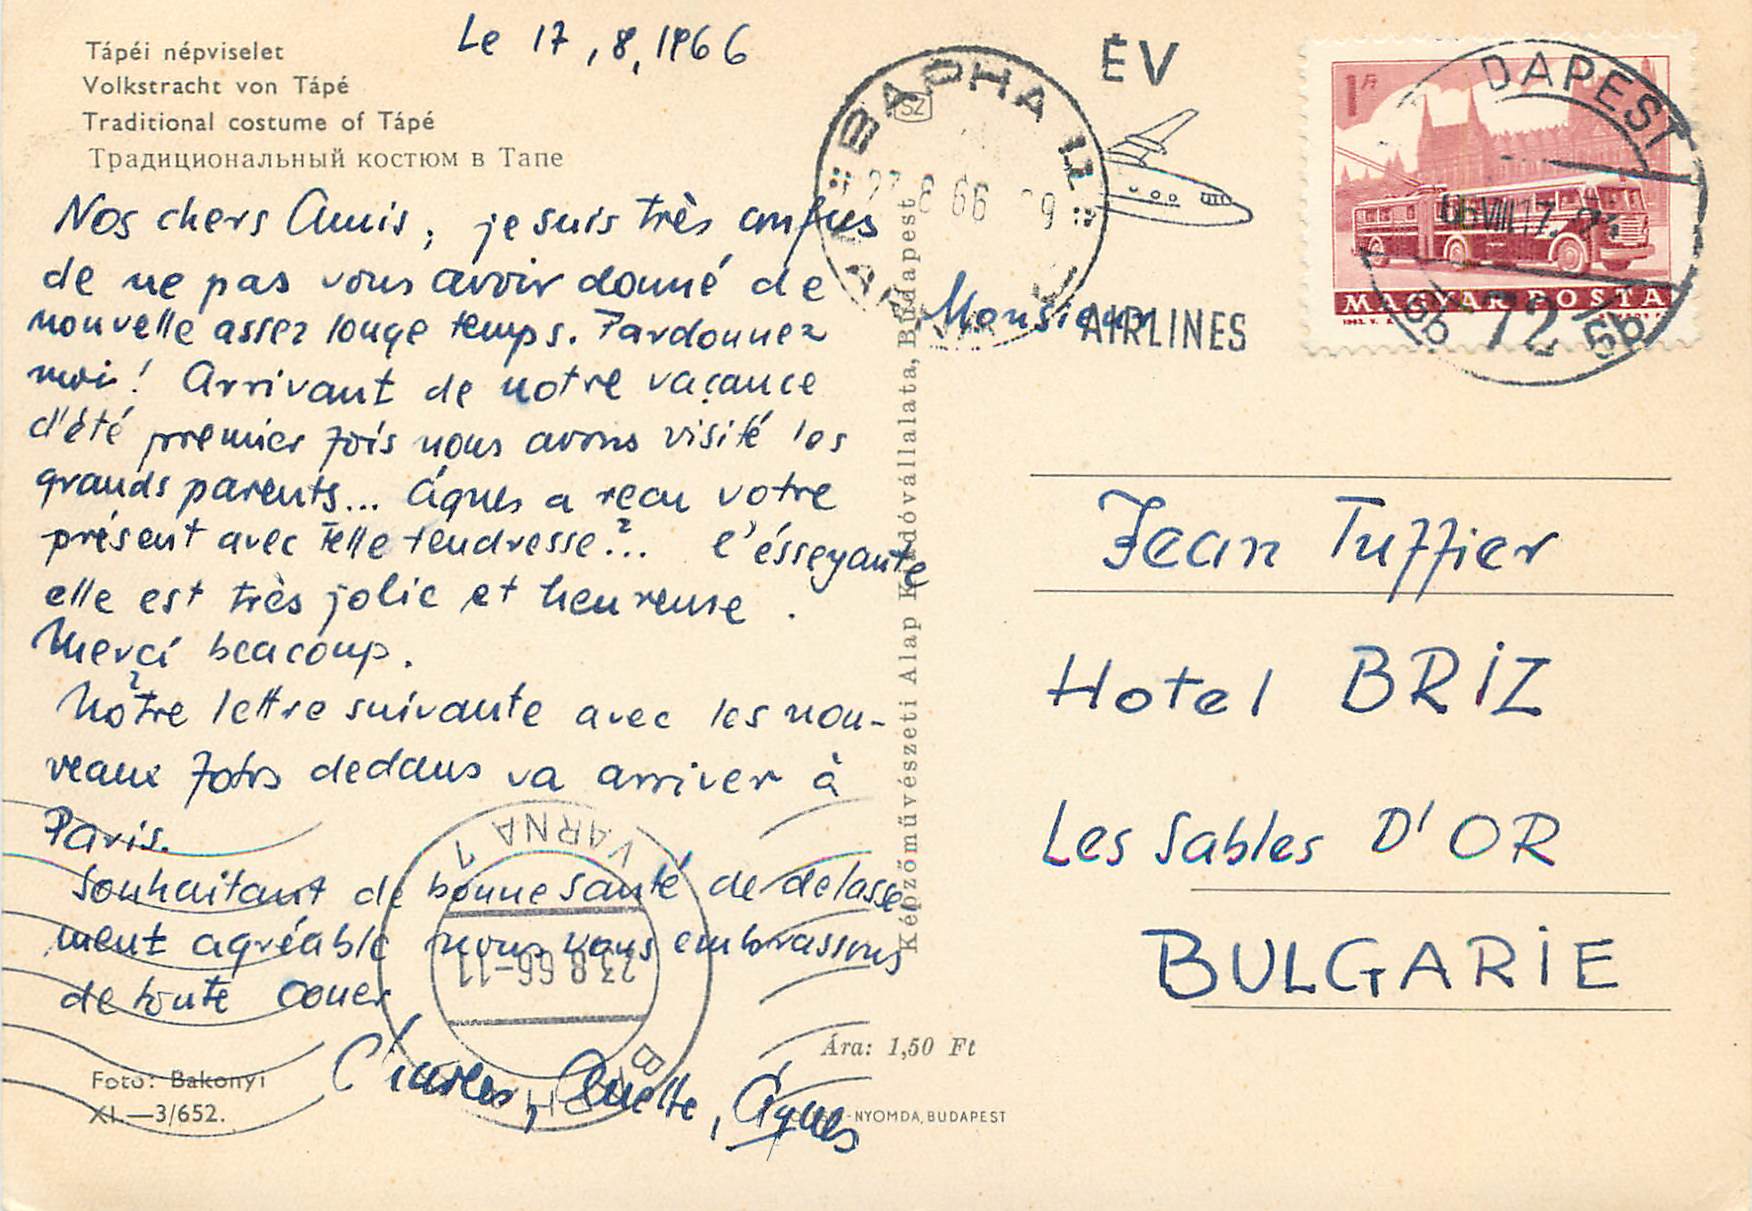 Tápéi népviselet
Volkstracht von Tápé
Traditional costume of Tápé
Традиционный костюм в Тапе
Le 17, 8, 1966
Nos chers Amis, je suis très confus
de ne pas vous avoir donné de
nouvelle assez longe temps. Pardonnez
moi! Arrivant de notre vacance
d'été premier fois nous avons visité les
grands parents... Ágnes a reçu votre
présent avec telle tendresse?.. l'ésseyante
elle est très jolie et heureuse.
Merci beacoup.
Nôtre lettre suivante avec les nou-
veaux fotos dedans va arriver à
Paris.
Souhaitant de bonne santé de delasse
ment agréable nous vous embrassons
de toute couer
Charles, Ágnes
Foto: Bakonyi
XI.—3/652.
Képzőművészeti Alap Kiadóvállalata, Budapest
Ára: 1,50 Ft
-NYOMDA, BUDAPEST
ÉV
AIRLINES
ВАРНА Ц
SZ
8 66
1 Ft
MAGYAR POSTA
DAPEST
66 VIII 17.
72
6b
6b
Monsieur
Jean Tuffier
Hotel BRIZ
Les Sables D'OR
BULGARIE
VARNA 1
23.8.66-11